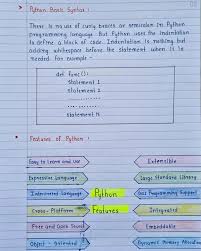 Python Basic Syntax :
There is no use of curly braces or semicolon in Python
programming language. But Python uses the indentation
to define a block of code. Indentation is nothing but
adding whitespace before the statement when it is
needed. For example -
def func():
statement 1
statement 2
..........
..........
statement N
Features of Python :
Easy to Learn and Use
Extensible
Expressive Language
Large Standard Library
Interpreted Language
Python
GUI Programming Support
Cross - Platform
Features
Integrated
Free and Open Source
Embeddable
Object - Oriented
Dynamic Memory Allocation